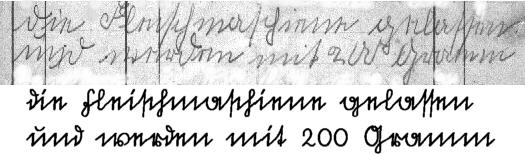 die Fleischmaschiene gelassen
und werden mit 200 Gramm
die Fleischmaschiene gelassen
und werden mit 200 Gramm